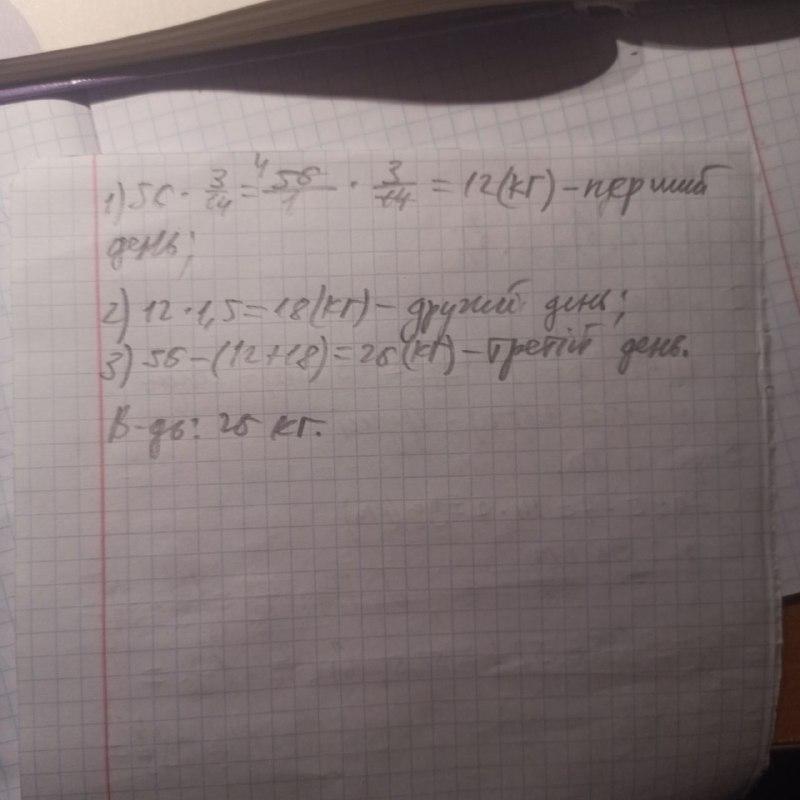 1) 56 · 3/14 = ⁴56/1 · 3/14 = 12(кг) – перший
день;
2) 12 · 1,5 = 18(кг) – другий день;
3) 56 – (12 + 18) = 26(кг) – третій день.
В-дь: 26 кг.